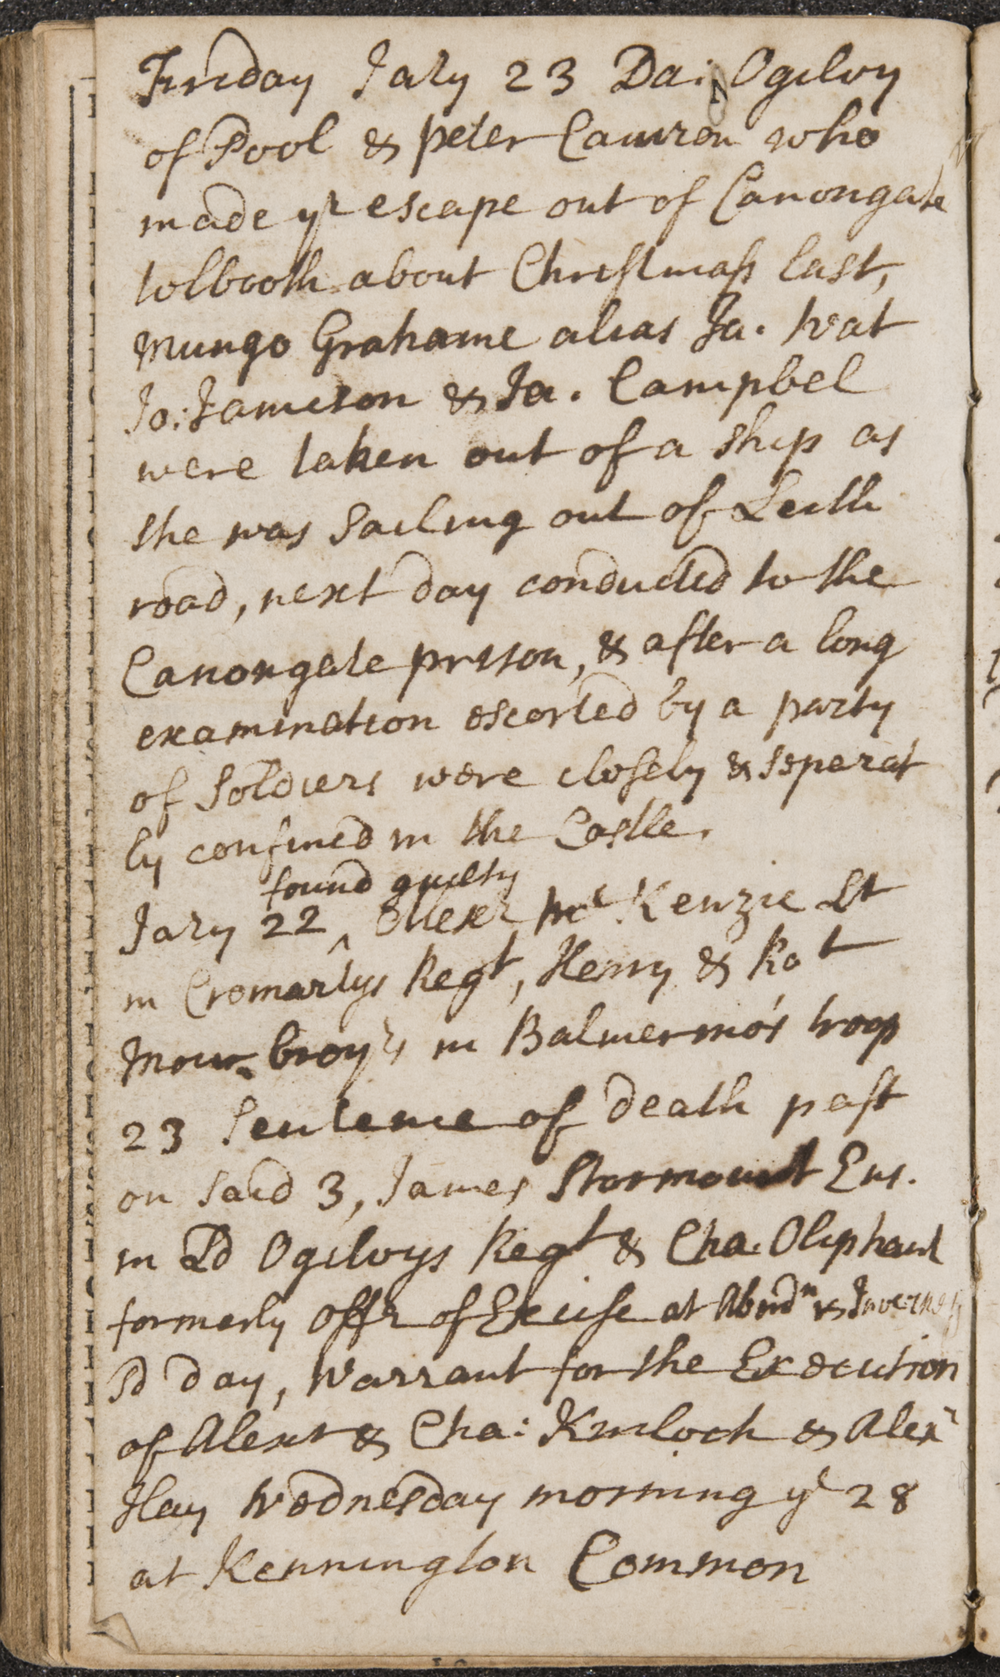 Friday Jary 23 Da: Ogilvy
of Pool & peter Camron who
made yr escape out of Canongate
tolbooth about Christmass last,
Mungo Grahame alias Ja. Wat
Jo: Jameson & Ja. Campbel
were taken out of a ship as
she was Sailing out of Leith
road, next day conducted to the
Canongate prison, & after a long
examination escorted by a party
of Soldiers were closely & seperat
ly confined in the Castle.
found guilty
Jary 22 ^ Alexr Mc Kenzie Lt
in Cromartys Regt, Henry & Rot
Mow-broy's in Balmerino's troop
23 Sentence of death past
on said 3, James Stormount Ens.
in Ld Ogilvys Regt & Cha: Oliphant
formerly offr of Excise at Abrdn & Inverness
Sd day, Warrant for the Execution
of Alexr & Cha: Kinloch & Alexr
Hay Wednesday morning ye 28
at Kennington Common